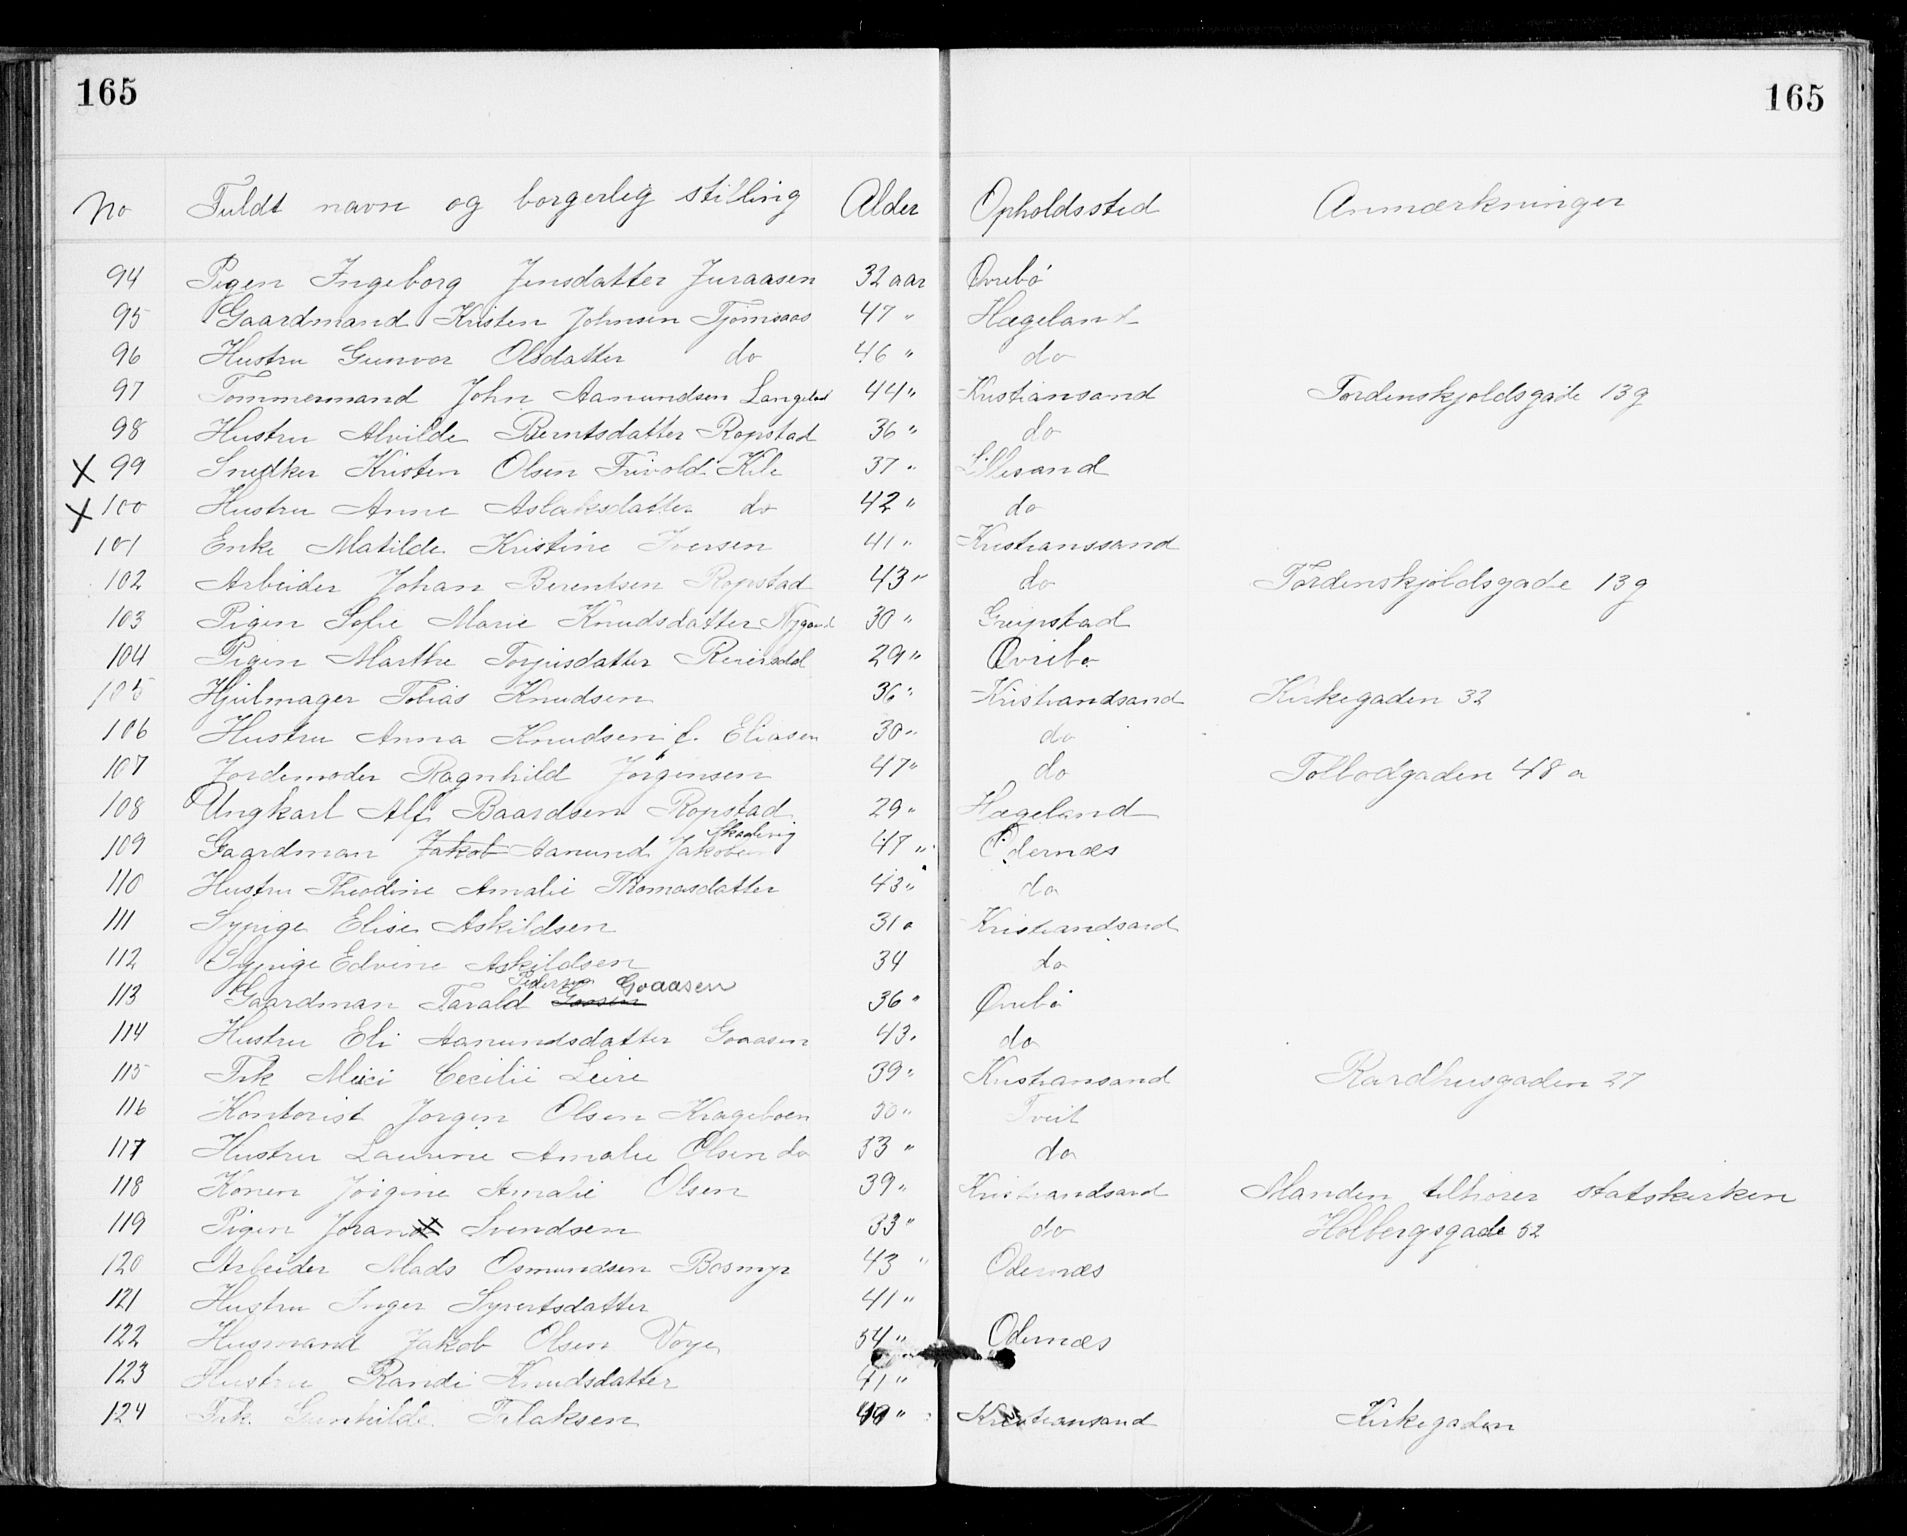 165 165
No Fuldt navn og borgerlig stilling Alder Opholdssted Anmærkninger
94 Pigen Ingeborg Jensdatter Juraasen 32 aar Øvrebö
95 Gaardmand Kristen Johnsen Tjomsaas 47 " Hægeland
96 Hustru Gunvor Olsdatter do 46 " do
97 Tømmermand John Aanundsen Langeland 44 " Kristiansand Tordenskjoldsgade 13g
98 Hustru Alvilde Berntsdatter Ropstad 36 " do
X 99 Snedker Kristen Olsen Trivold Kile 37 " Lillesand
X 100 Hustru Anne Aslaksdatter do 42 " do
101 Enke Matilde Kristine Iversen 41 " Kristianssand
102 Arbeider Johan Berentsen Ropstad 43 " do Tordenskjoldsgade 13g
103 Pigen Sofie Marie Knudsdatter Nygaard 30 " Greipstad
104 Pigen Marthe Torjusdatter Reiersdal 29 " Øvrebo
105 Hjulmager Tobias Knudsen 36 " Kristiandsand Kirkegaden 32
106 Hustru Anna Knudsen f. Eliasen 30 " do
107 Jordemoder Ragnhild Jørgensen 47 " do Tolbodgaden 48 a
108 Ungkarl Alf Baardsen Ropstad 29 " Hægeland
109 Gaardman Jakob Aanund Jakobsen 47 " Odernæs
110 Hustru Theodine Amalie Thomasdatter 43 " do
111 Sypige Elise Askildsen 31 " Kristiandsand
112 Sypige Edvine Askildsen 34 do
Pedersen Goaasen
113 Gaardman Tarald 36 " Øvrebö
114 Hustru Eli Aanundsdatter Goaasen 43 " do
115 Frk Meici Cecilie Leire 39 " Kristiansand Raadhusgaden 27
116 Kontorist Jørgen Olsen Krageboen 50 " Tveit
117 Hustru Laurine Amalie Olsen do 53 " do
118 Konen Jørgine Amalie Olsen 39 " Kristiandsand Manden tilhører statskirken
119 Pigen Joran Svendsen 33 " do Holbergsgade 52
120 Arbeider Mads Osmundsen Bosmyr 43 " Odernæs
121 Hustru Inger Syvertsdatter 41 "
122 Husmand Jakob Olsen Vorge 54 " Odernæs
123 Hustru Randi Knudsdatter 41 "
124 Frk. Gunhilde Telaksen 49 " Kristiansand Kirkegaden